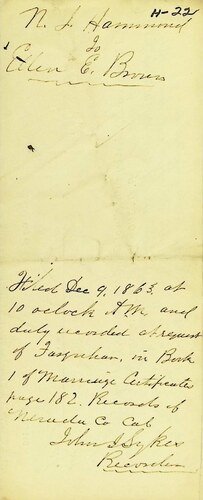 H-22
N. J. Hammond
To
Ellen E. Brown
Filed Dec 9, 1863, at
10 oclock A M. and
duly recorded at request
of Farquhar, in Book
1 of Marriage Certificates
page 182. Records of
Nevada Co Cal
John I Sykes
Recorder